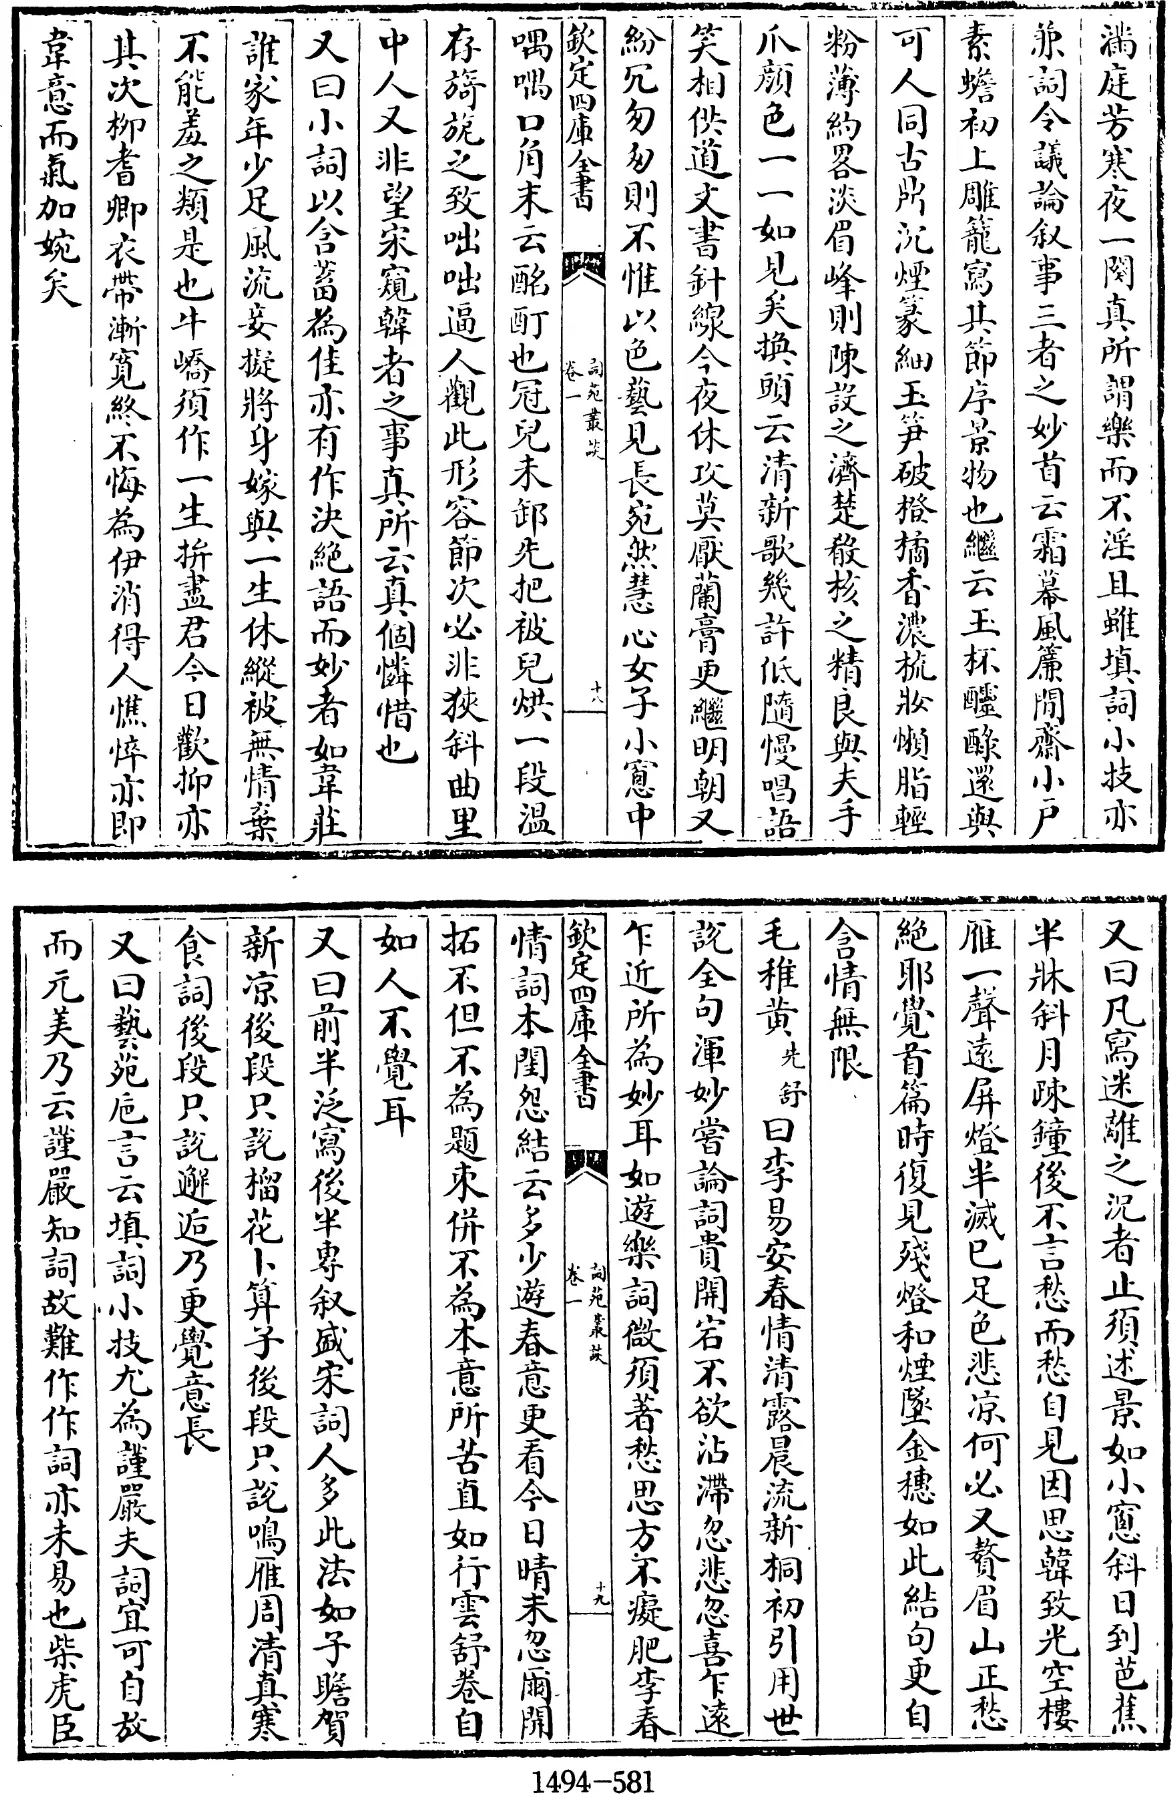 滿庭芳寒夜一闋真所謂樂而不淫且雖填詞小技亦
兼詞令議論叙事三者之妙首云霜幕風簾閒齋小戶
素蟾初上雕籠寫其節序景物也繼云玉杯醽醁還與
可人同古鼎沉煙篆細玉笋破橙橘香濃梳妝懶脂輕
粉薄約畧淡眉峰則陳設之濟楚殽核之精良與夫手
爪顔色一一如見矣換頭云清新歌幾許低隨慢唱語
笑相供道文書針線今夜休攻莫厭蘭膏更繼明朝又
紛冗匆匆則不惟以色藝見長宛然慧心女子小窻中
喁喁口角末云酩酊也冠兒未卸先把被兒烘一段溫
存旖旎之致咄咄逼人觀此形容節次必非狹斜曲里
中人又非望宋窺韓者之事真所云真個憐惜也
又曰小詞以含蓄為佳亦有作決絕語而妙者如韋莊
誰家年少足風流妾擬將身嫁與一生休縱被無情棄
不能羞之類是也牛嶠須作一生拚盡君今日歡抑亦
其次柳耆卿衣帶漸寬終不悔為伊消得人憔悴亦即
韋意而氣加婉矣
欽定四庫全書
詞苑叢談
卷一
十八
又曰凡寫迷離之況者止須述景如小窻斜日到芭蕉
半牀斜月疎鐘後不言愁而愁自見因思韓致光空樓
雁一聲遠屏燈半滅已足色悲涼何必又贅眉山正愁
絕耶覺首篇時復見殘燈和煙墜金穗如此結句更自
含情無限
毛稚黃先舒曰李易安春情清露晨流新桐初引用世
說全句渾妙嘗論詞貴開宕不欲沾滯忽悲忽喜乍遠
乍近所為妙耳如遊樂詞微須著愁思方不癡肥李春
情詞本閨怨結云多少遊春意更看今日晴未忽爾開
拓不但不為題束併不為本意所苦直如行雲舒卷自
如人不覺耳
又曰前半泛寫後半專叙盛宋詞人多此法如子瞻賀
新涼後段只說榴花卜算子後段只說鳴雁周清真寒
食詞後段只說邂逅乃更覺意長
又曰藝苑巵言云填詞小技尤為謹嚴夫詞宜可自放
而元美乃云謹嚴知詞故難作作詞亦未易也柴虎臣
欽定四庫全書
詞苑叢談
卷一
十九
1494-581